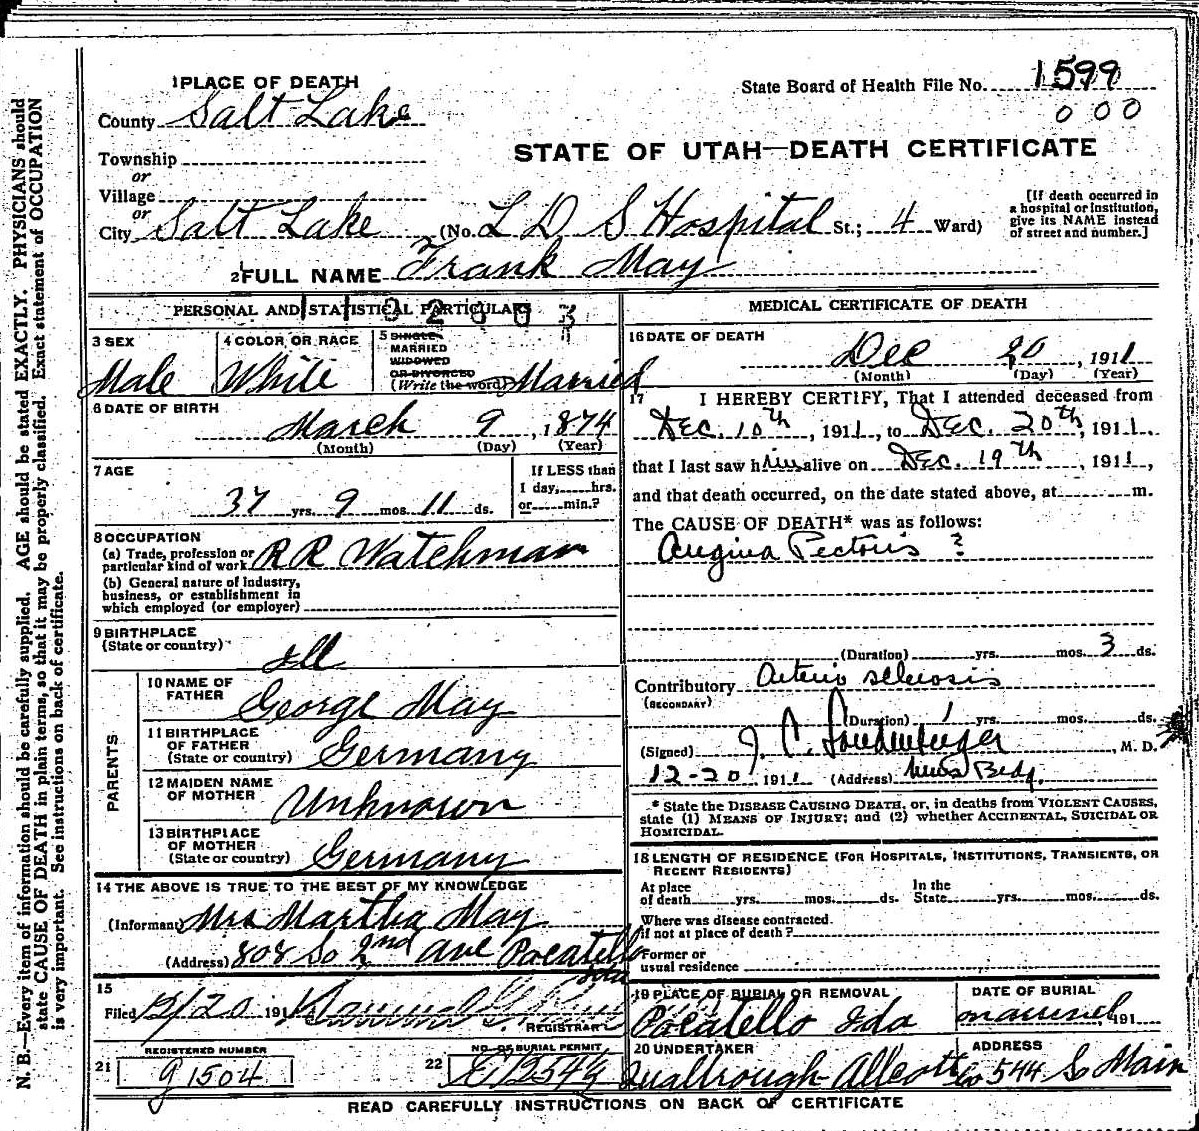 1 PLACE OF DEATH
State Board of Health File No. 1599
County Salt Lake
000
Township
STATE OF UTAH—DEATH CERTIFICATE
or
Village
or
City Salt Lake (No. L D S Hospital St.; 4 Ward)
[If death occurred in
a hospital or institution,
give its NAME instead
of street and number.]
2 FULL NAME Frank May
PERSONAL AND STATISTICAL PARTICULARS
3 SEX
Male
4 COLOR OR RACE
White
5 SINGLE,
MARRIED
WIDOWED
OR DIVORCED
(Write the word) Married
6 DATE OF BIRTH
March 9, 1874
(Month) (Day) (Year)
7 AGE
37 yrs. 9 mos. 11 ds.
If LESS than
1 day,......hrs.
or......min.?
8 OCCUPATION
(a) Trade, profession or
particular kind of work RR Watchman
(b) General nature of industry,
business, or establishment in
which employed (or employer)
9 BIRTHPLACE
(State or country)
Ill
PARENTS
10 NAME OF
FATHER
George May
11 BIRTHPLACE
OF FATHER
(State or country) Germany
12 MAIDEN NAME
OF MOTHER Unknown
13 BIRTHPLACE
OF MOTHER
(State or country) Germany
14 THE ABOVE IS TRUE TO THE BEST OF MY KNOWLEDGE
(Informant) Mrs Martha May
(Address) 808 So 2nd ave Pocatello
Ida
15
Filed 12/20 191
REGISTRAR
REGISTERED NUMBER
21 g1504
NO. OF BURIAL PERMIT
22
MEDICAL CERTIFICATE OF DEATH
16 DATE OF DEATH
Dec 20, 1911
(Month) (Day) (Year)
17 I HEREBY CERTIFY, That I attended deceased from
Dec. 10th, 1911, to Dec. 20th, 1911.
that I last saw him alive on Dec. 19th, 1911,
and that death occurred, on the date stated above, at......m.
The CAUSE OF DEATH* was as follows:
Angina Pectoris ?
(Duration) yrs. mos. 3 ds.
Contributory Arterio sclerosis
(SECONDARY)
(Duration) 1 yrs. mos. ds.
(Signed) J. C. , M. D.
12-20 1911 (Address)
* State the DISEASE CAUSING DEATH, or, in deaths from VIOLENT CAUSES,
state (1) MEANS OF INJURY; and (2) whether ACCIDENTAL, SUICIDAL OR
HOMICIDAL.
18 LENGTH OF RESIDENCE (FOR HOSPITALS, INSTITUTIONS, TRANSIENTS, OR
RECENT RESIDENTS)
At place
of death......yrs......mos......ds.
In the
State......yrs......mos......ds.
Where was disease contracted.
if not at place of death?
Former or
usual residence
19 PLACE OF BURIAL OR REMOVAL
Pocatello Ida
DATE OF BURIAL
191
20 UNDERTAKER
ADDRESS
544 S Main
READ CAREFULLY INSTRUCTIONS ON BACK OF CERTIFICATE
N. B.—Every item of information should be carefully supplied. AGE should be stated EXACTLY. PHYSICIANS should
state CAUSE OF DEATH in plain terms, so that it may be properly classified. Exact statement of OCCUPATION
is very important. See instructions on back of certificate.